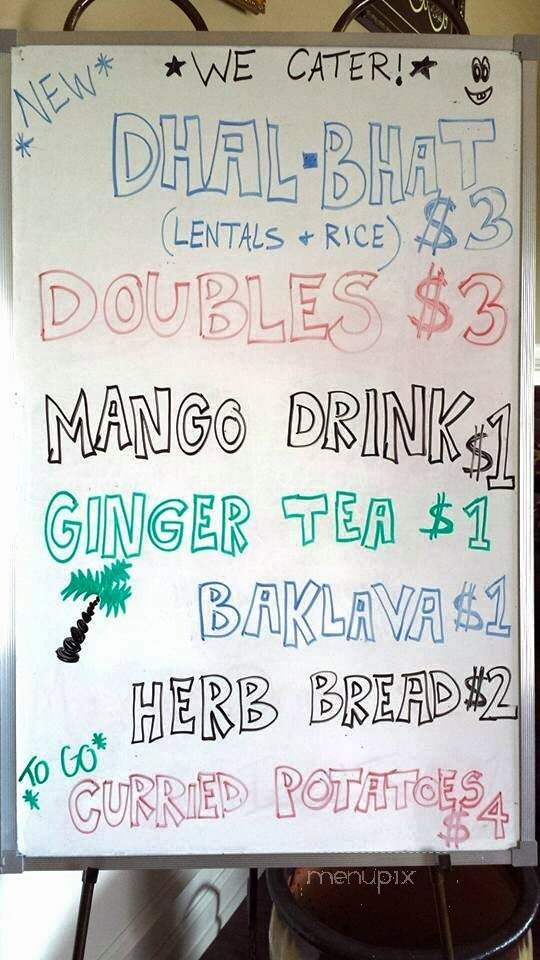 ★WE CATER!★
*NEW*
DHAL-BHAT
(LENTALS + RICE) $3
DOUBLES $3
MANGO DRINK $1
GINGER TEA $1
BAKLAVA $1
HERB BREAD $2
*TO GO*
CURRIED POTATOES $4
menupix